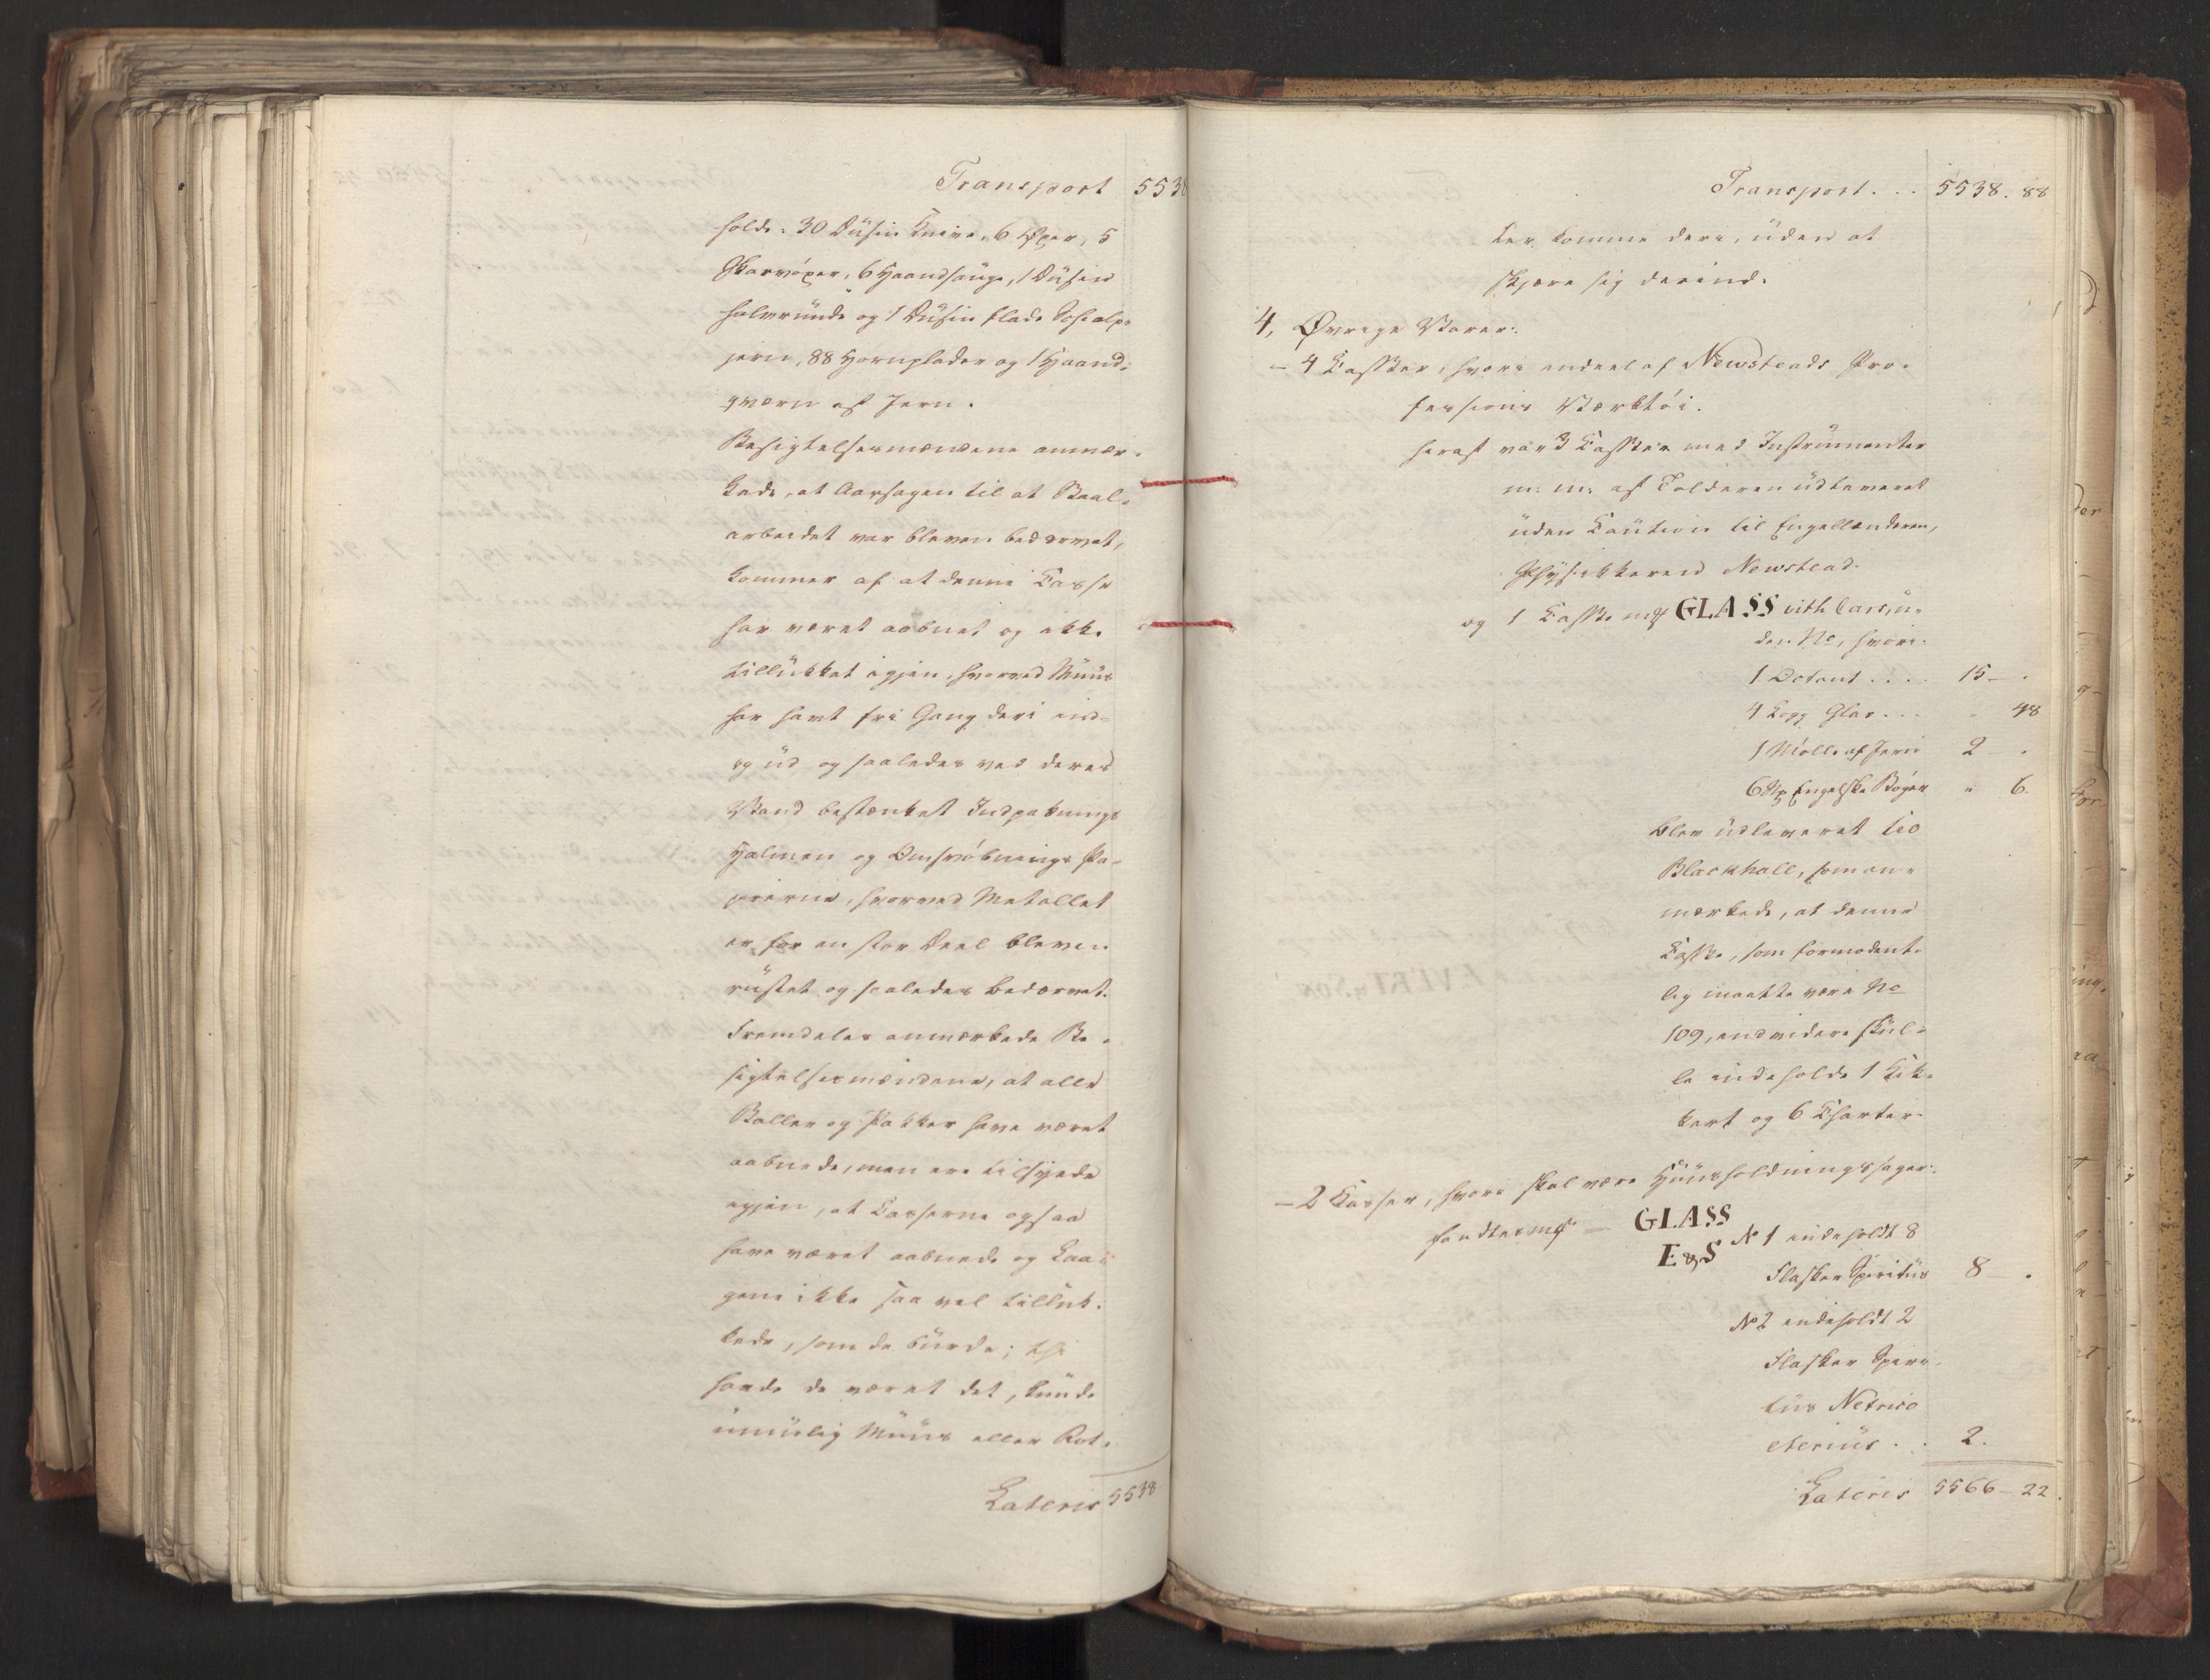 Transport 553
holde: 30 Düsin Knive, 6 Øxer, 5
Skarøxer, 6 Haandsauge, 1 Düsin
halvründe og 1 Düsin flade
jern, 88 Hornplader og 1 Haand-
qværn af Jern.
Besigtelsesmændene anmær-
kede, at Aarsagen til at Staal-
arbeidet var bleven bedærvet,
kommer af at denne Casse
har været aabnet og ikke
tillükket igjen, hvorved Müüs
har havt fri Gang deri ind-
og üd og saaledes ved deres
Vand bestænket Indpaknings
Halmen og Omsvøbnings Pa-
pirerne, hvorved Metallet
er for en stor Deel bleven
rüstet og saaledes bedærvet.
Fremdeles anmærkede Be-
sigtelsesmændene, at alle
Baller og Pakker have været
aabnede, men ere tilsyede
igjen, at Casserne ogsaa
have været aabnede og Laa-
gene ikke saa vel tillük-
kede, som de bürde; thi
havde de været det, künde
ümülig Müüs eller Rot-
Lateris 5538
Transport . . . 5538. 88
ter komme deri, üden at
skjære sig derind.
4, Øvrige Varer:
- 4 Kassker, hvori endeel af Newsteads Pro-
fessions Værktøi.
heraf var 3 Kassker med Instrümenter
m: m: af Tolderen üdleveret
üden Kaütion til Engellænderen,
Physikkeren Newstead.
og 1 Kasske GLASS with Care, ü-
den No, hvori:
1 Octant . . . . 15 - .
4 Logg Glas . . . " 48
1 Mølle af Jern 2 - .
6 Engelske Bøger " 6.
blev üdleveret til
Blackhall, som an-
mærkede, at denne
Kasske, som formodent-
lig maatte være No
109, endvidere skül-
le indeholde 1 Kik-
kert og 6 Charter.
- 2 Kasser, hvori skal være Hüüsholdningssager:
fandtes GLASS
E&S No 1 indeholdt 8
Flasker Spiritüs 8 - .
No 2 indeholdt 2
Flasker Spiri-
tüs Nitrico
etheriüs . . 2.
Lateris 5566 - 22.